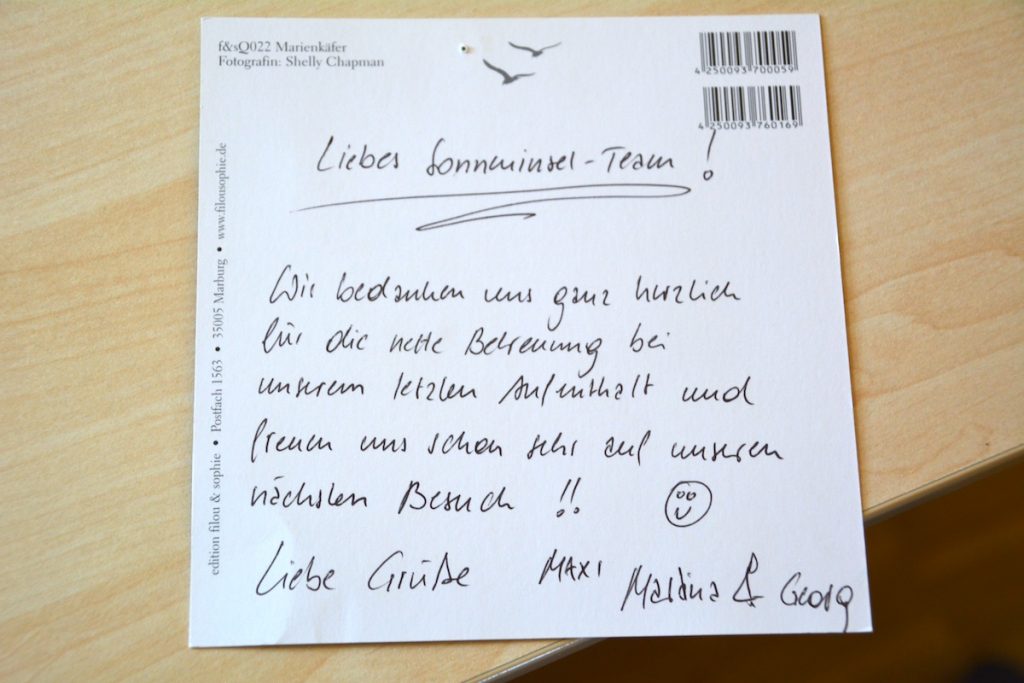 f&sQ022 Marienkäfer
Fotografin: Shelly Chapman
4 250093 700059
4 250093 760169
edition filou & sophie • Postfach 1563 • 35005 Marburg • www.filousophie.de
Liebes Sonneninsel-Team!
Wir bedanken uns ganz herzlich
für die nette Betreuung bei
unserem letzten Aufenthalt und
freuen uns schon sehr auf unseren
nächsten Besuch !!
Liebe Grüße MAXI Martina & Georg